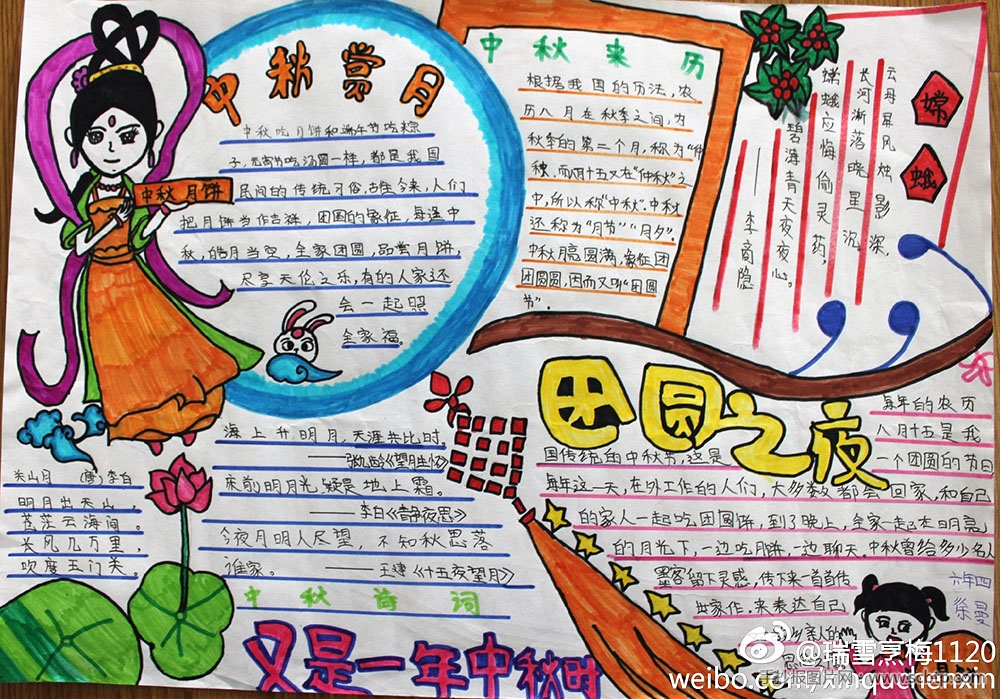 中秋赏月
中秋吃月饼和端午节吃粽
子,元宵节吃汤圆一样,都是我国
民间的传统习俗,古往今来,人们
把月饼当作吉祥,团圆的象征,每逢中
秋,皓月当空,全家团圆,品尝月饼,
尽享天伦之乐,有的人家还
会一起照
全家福.
中秋月饼
中秋来历
根据我国的历法,农
历八月在秋季之间,为
秋季的第二个月,称为“仲
秋,而八月十五又在“仲秋”之
中,所以称“中秋”.中秋
还称为“月节”“月夕”.
中秋月亮圆满,象征团
团圆圆,因而又叫“团圆
节”.
嫦
娥
云母屏风烛影深,
长河渐落晓星沉
嫦娥应悔偷灵药,
碧海青天夜夜心。
——李商隐
团圆之夜
每年的农历
八月十五是我
国传统的中秋节,这是
一个团圆的节日
每年这一天,在外工作的人们,大多数都会回家,和自己
的家人一起吃团圆饼,到了晚上,全家一起在明亮
的月光下,一边吃月饼,一边聊天.中秋曾给多少名人
墨客留下灵感,传下来一首首佳
作,来表达自己
六年四
徐曼
海上升明月,天涯共此时.
——张九龄《望月怀》
床前明月光,疑是地上霜。
——李白《静夜思》
今夜月明人尽望,不知秋思落
谁家。——王建《十五夜望月》
中秋诗词
关山月 (唐)李白
明月出天山,
苍茫云海间。
长风几万里,
吹度玉门关。
又是一年中秋时
@瑞雪烹梅1120
weibo.com/xinquchenxin